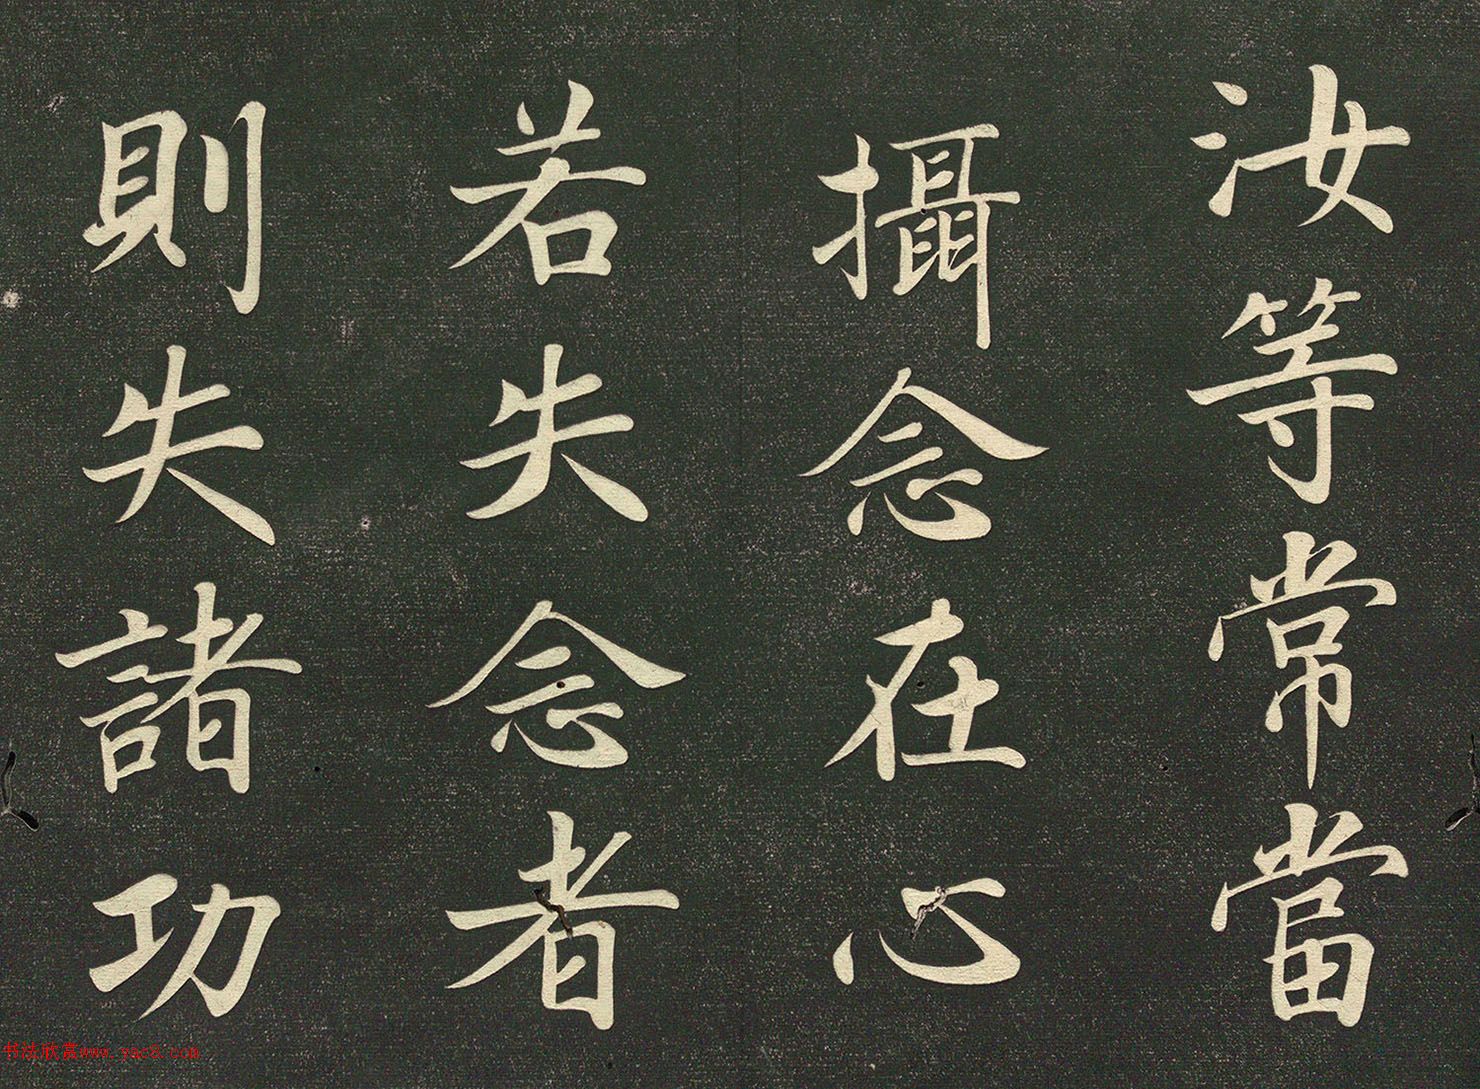 汝等常當
攝念在心
若失念者
則失諸功
书法欣赏www.yac8.com